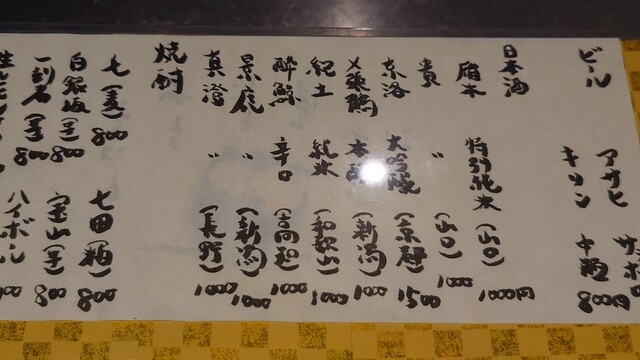 ビール
アサヒ
キリン
中瓶
800円
日本酒
雁木 特別純米 (山口) 1000円
貴 〃 (山口) 1000
京洛 大吟醸 (京都) 1500
〆張鶴 本醸 (新潟) 1000
紀土 純米 (和歌山) 1000
酔鯨 辛口 (高知) 1000
景虎 〃 (新潟) 1000
真澄 〃 (長野) 1000
焼酎
七 (麦) 800
七田 (粕) 800
白銀坂 (芋) 800
宝山 (芋) 800
一刻者 (芋) 800
ハイボール